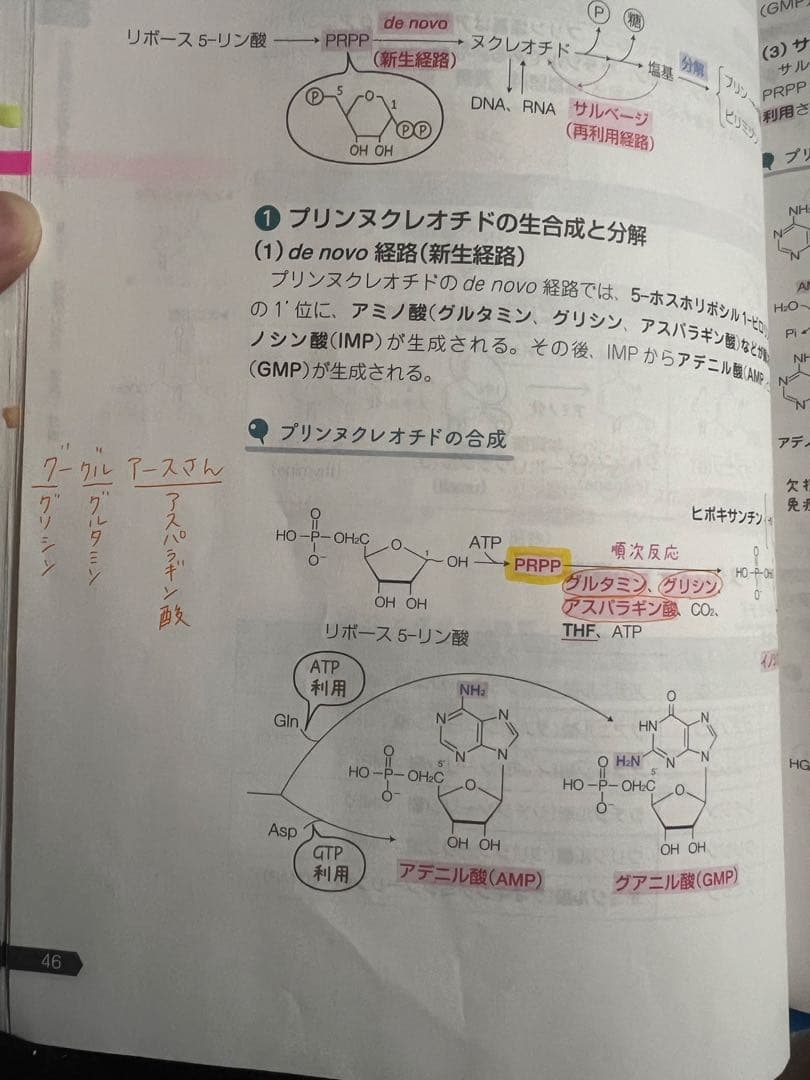 リボース 5-リン酸
PRPP
de novo
(新生経路)
ヌクレオチド
P
糖
塩基
分解
プリン
DNA、RNA
サルベージ
(再利用経路)
P
5
O
1
P P
OH OH
(GMP
(3) サ
サル
PRPP
利用さ
1 プリンヌクレオチドの生合成と分解
(1) de novo 経路(新生経路)
プリンヌクレオチドの de novo 経路では、5-ホスホリボシル 1-ピロ
の 1' 位に、アミノ酸(グルタミン、グリシン、アスパラギン酸)などが
ノシン酸(IMP)が生成される。その後、IMP からアデニル酸(AMP
(GMP)が生成される。
プリンヌクレオチドの合成
グーグル アースさん
グリシン
グルタミン
アスパラギン酸
HO-P-OH₂C
O
O⁻
O
1
OH
OH OH
リボース 5-リン酸
ATP
PRPP
順次反応
グルタミン、グリシン、
アスパラギン酸、CO₂、
THF、ATP
ヒポキサンチン
HO-P-
O
O⁻
ATP
利用
Gln
Asp
GTP
利用
NH₂
N
N
N
N
HO-P-OH₂C
O
O⁻
5'
O
OH OH
アデニル酸(AMP)
O
HN
N
H₂N
N
N
HO-P-OH₂C
O
O⁻
5'
O
OH OH
グアニル酸(GMP)
プリ
NH₂
N
N
H₂O
Pi
NH
N
N
アデ
HG
46